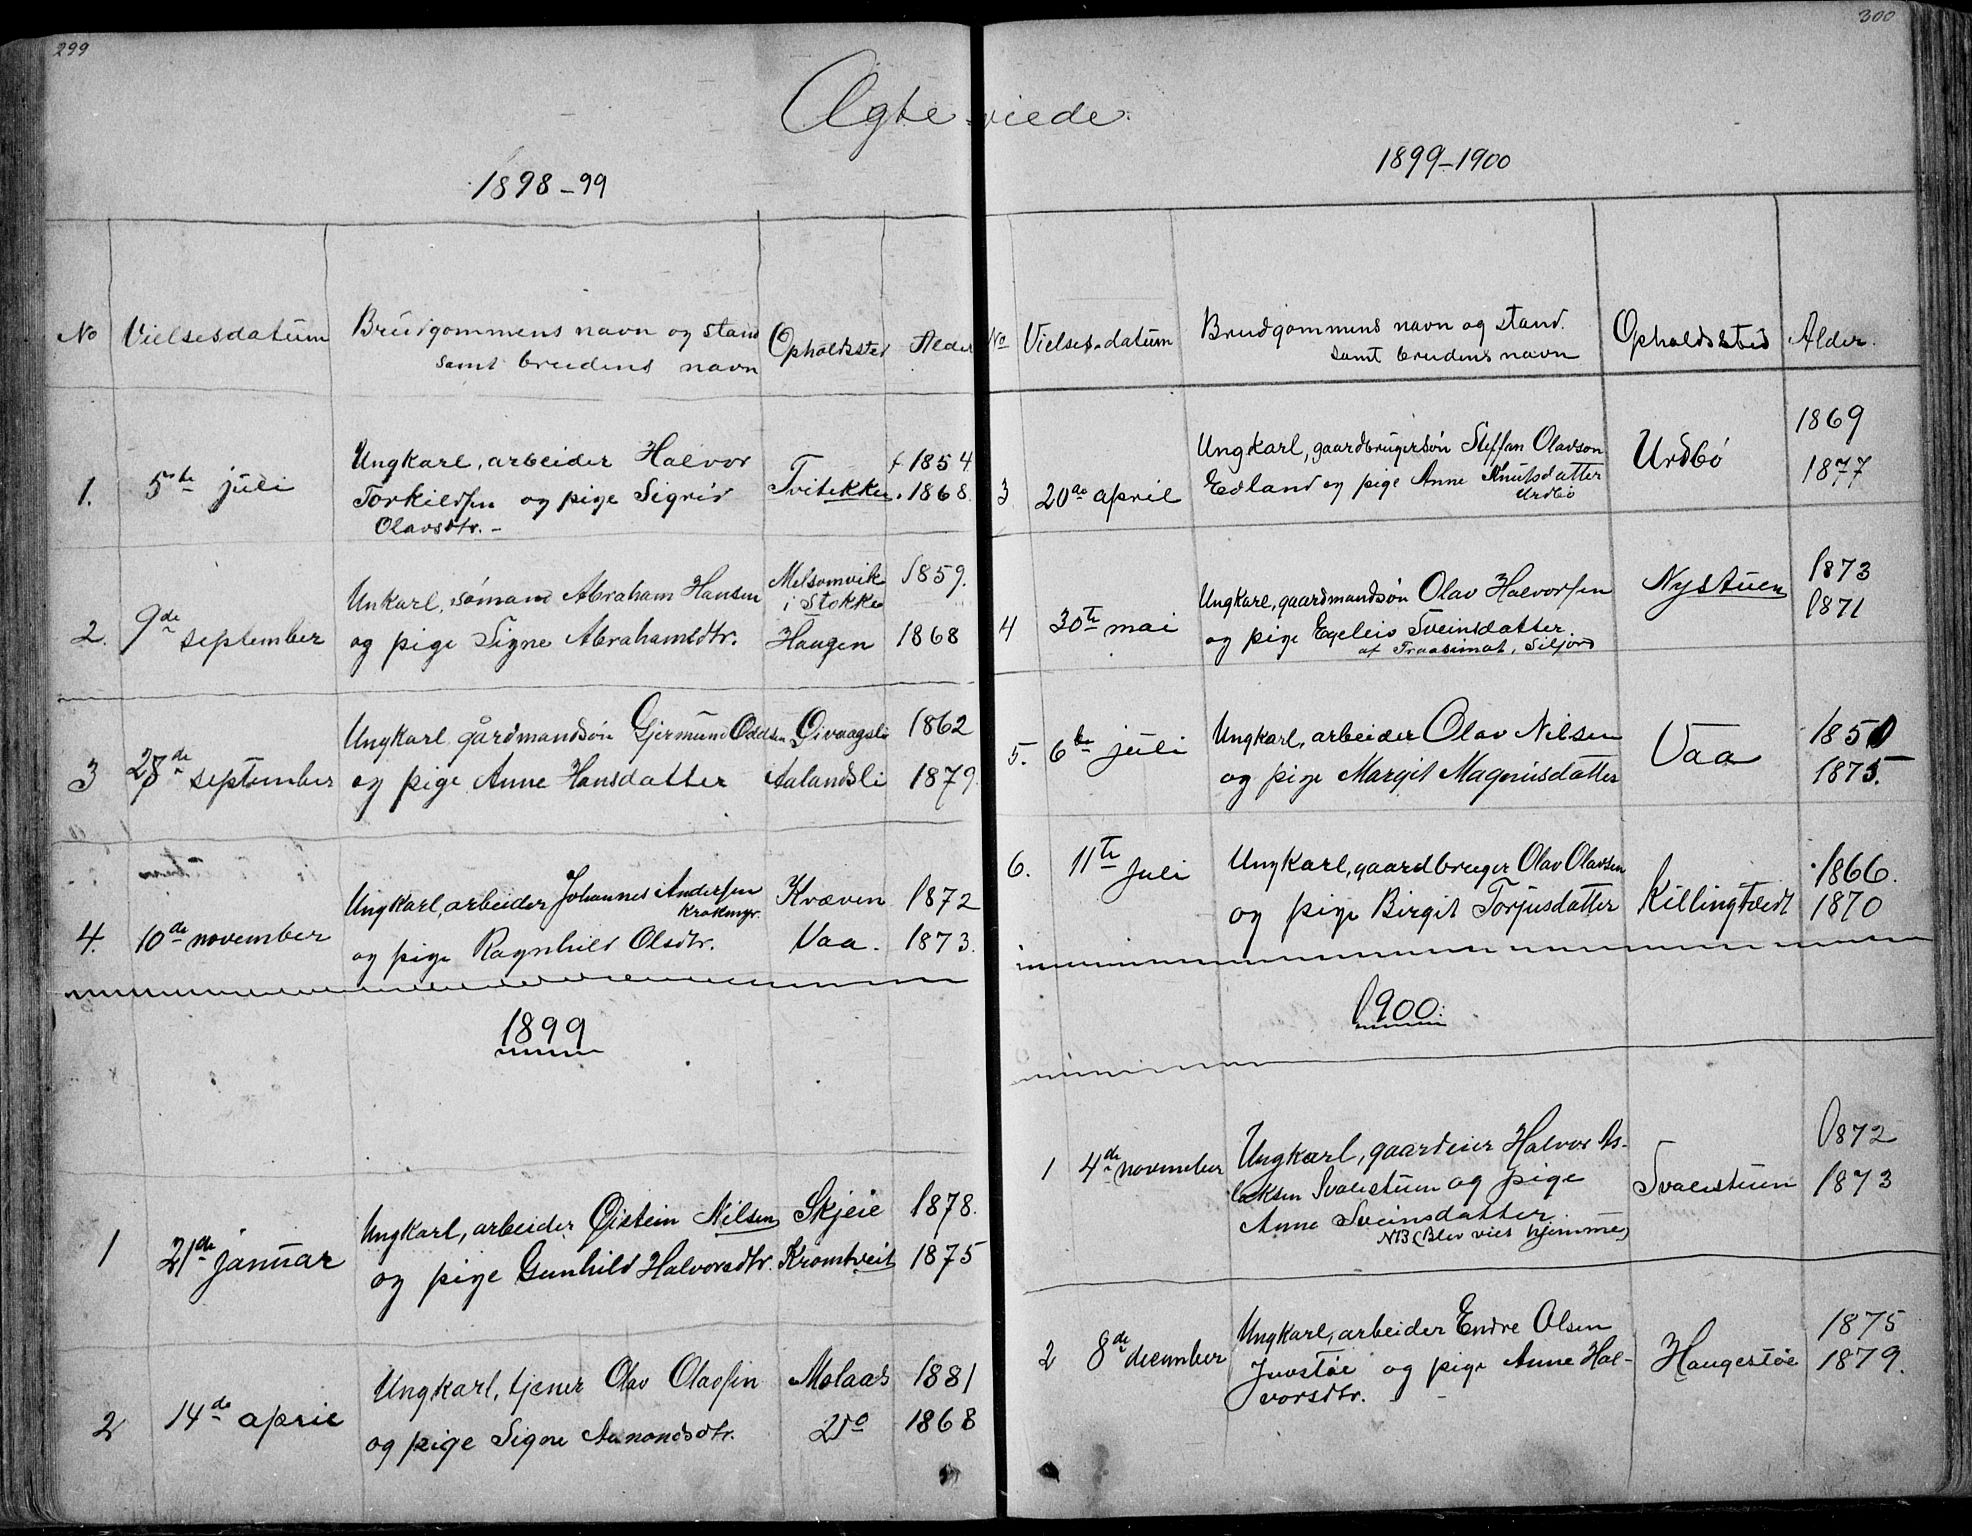 299
300
Ægteviede.
1898-99
No Vielsesdatum Brudgommens navn og stand Opholdsted Alder
samt brudens navn
1. 5te juli Ungkarl, arbeider Halvor Tvitekker 1854
Torkildsen og pige Sigrid 1868
Olavsdtr. -
2. 9de september Unkarl, sømand Abraham Hansen Melsomvik 1859.
i Stokke
og pige Signe Abrahamsdtr. Haugen 1868
3 de september Ungkarl gårdmandsøn Gjermund Oddsen 1862
og pige Anne Hansdatter Aalandsli 1879.
4. 10de november Ungkarl, arbeider Johannes Andersen Kvæven 1872
Krakmyr.
og pige Ragnhild Olsdtr. Vaa. 1873.
1899
1 21de januar Ungkarl, arbeider Øistein Nilsen Skjeie 1878.
og pige Gunhild Halvorsdtr. Kromtveit 1875
2 14de april Ungkarl, tjener Olav Olavsen Molaas 1881
og pige Signe Aamondsdtr. Do 1868
1899-1900
No Vielses-datum Brudgommens navn og stand. Opholdsted Alder.
samt brudens navn
3. 20de april Ungkarl, gaardbrugersøn Steffan Olavson Urdbø 1869
Edland og pige Anne Knutsdatter 1877
Urdbø
4 30te mai Ungkarl, gaardmandsøn Olav Halvorsen Nystuen 1873
og pige Egeleiv Sveinsdatter 1871
af Traasimot, Siljord
5. 6te juli Ungkarl, arbeider Olav Nilsen Vaa 1850
og pige Margit Magnusdatter 1875.
6. 11te Juli Ungkarl, gaardbruger Olav Olavsen 1866.
og pige Birgit Torjusdatter Killingtveidt 1870
1900.
1 4de november Ungkarl, gaardeier Halvor As- 1872
laksen Svalestuen og pige Svalestuen 1873
Anne Sveinsdatter.
NB (Blev viet hjemme)
2 8de december Ungkarl, arbeider Endre Olsen 1875
Juvstøe og pige Anne Hal- Haugestøe 1879.
vorsdtr. -